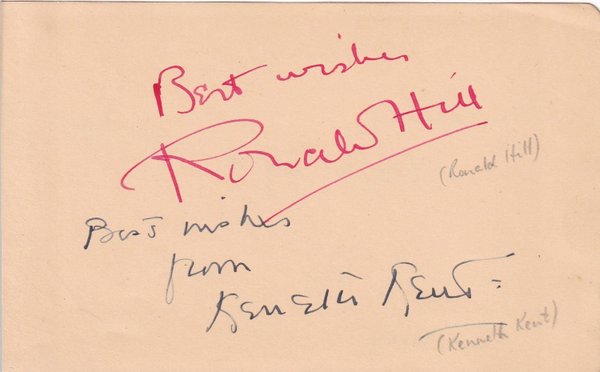 Best wishes
Ronald Hill
(Ronald Hill)
Best wishes
from
Kenneth Kent
(Kenneth Kent)